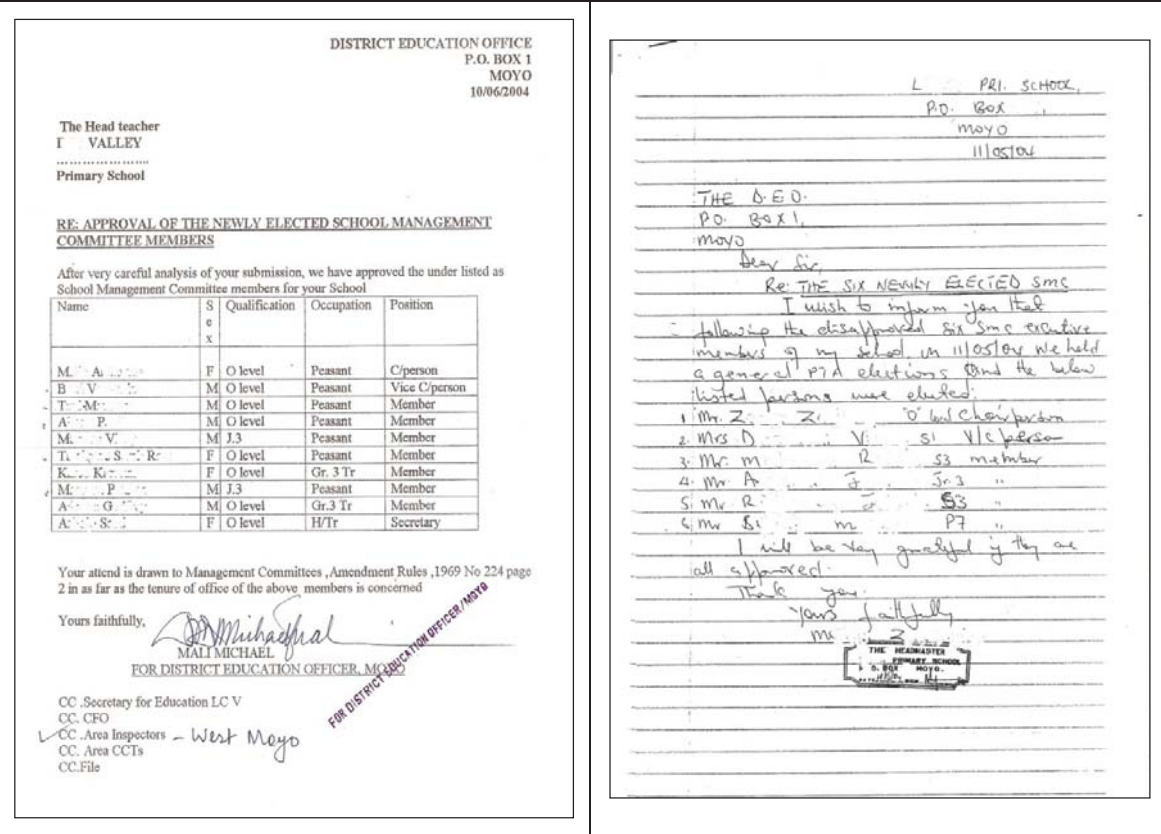 DISTRICT EDUCATION OFFICE
P.O. BOX 1
MOYO
10/06/2004
The Head teacher
VALLEY
.......................
Primary School
RE: APPROVAL OF THE NEWLY ELECTED SCHOOL MANAGEMENT
COMMITTEE MEMBERS
After very careful analysis of your submission, we have approved the under listed as
School Management Committee members for your School
Name Sex Qualification Occupation Position
M. A F O level Peasant C/person
B V M O level Peasant Vice C/person
T M M O level Peasant Member
A P. M O level Peasant Member
M. V M J.3 Peasant Member
T. S R F O level Peasant Member
K K F O level Gr. 3 Tr Member
M P M J.3 Peasant Member
A G M O level Gr.3 Tr Member
A S F O level H/Tr Secretary
Your attend is drawn to Management Committees ,Amendment Rules ,1969 No 224 page
2 in as far as the tenure of office of the above members is concerned
Yours faithfully,
MALI MICHAEL
FOR DISTRICT EDUCATION OFFICER, MOYO
FOR DISTRICT EDUCATION OFFICER/MOYO
CC .Secretary for Education LC V
CC. CFO
CC .Area Inspectors – West Moyo
CC. Area CCTs
CC.File
L PRI. SCHOOL,
P.O. Box
moyo
11/05/04
THE D.E.O.
P.O. BOX 1,
moyo
Dear Sir,
Re: THE SIX NEWLY ELECTED SMC
I wish to inform you that
following the disapproved Six Smc excutive
members of my school on 11/05/04 we held
a general PTA elections and the below
listed persons were elected:
1 Mr. Z Z "O" Chairperson
2. Mrs D V S1 V/c/person
3. Mr. M R S3 member
4. Mr A J Jr.3 "
5. Mr R J S3 "
6. Mr B m P7 "
I will be very grateful if they are
all approved.
Thank you.
Yours faithfully
Mr Z
THE HEADMASTER
PRIMARY SCHOOL
BOX MOYO.